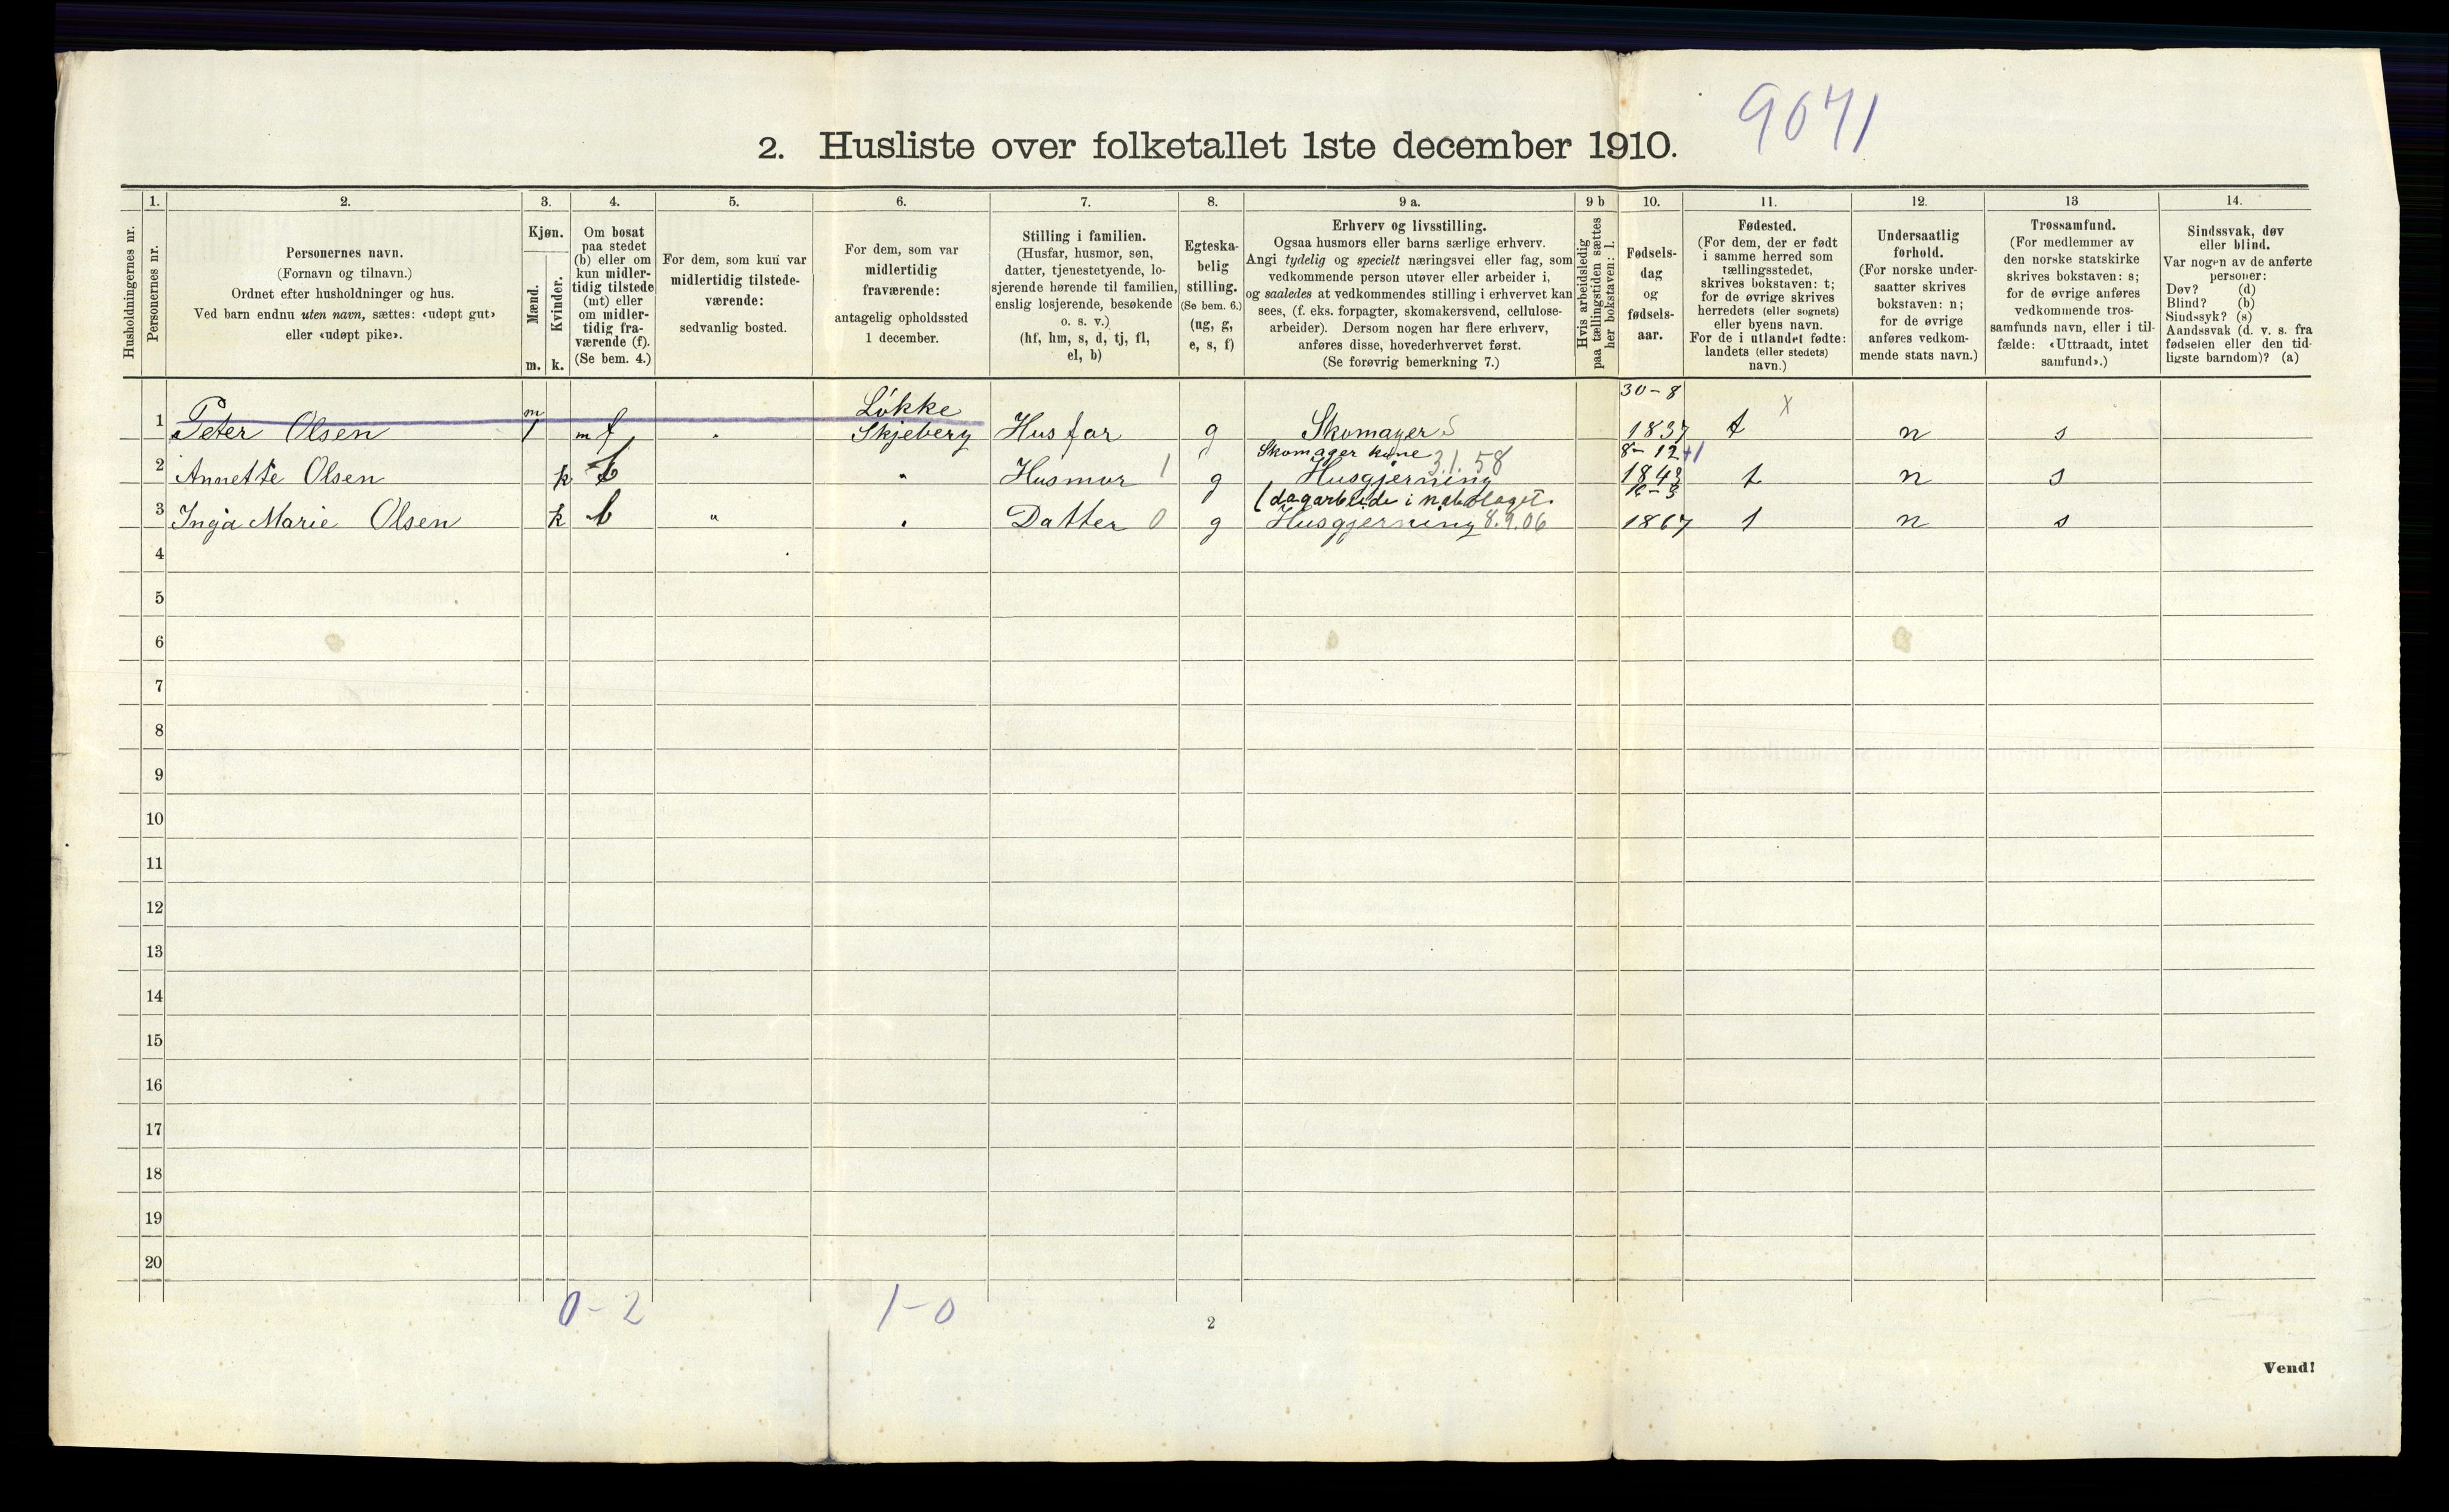 9071
2. Husliste over folketallet 1ste december 1910.
1. 2. 3. 4. 5. 6. 7. 8. 9 a. 9 b 10. 11. 12. 13 14.
Husholdningernes nr.
Personernes nr.
Personernes navn.
(Fornavn og tilnavn.)
Ordnet efter husholdninger og hus.
Ved barn endnu uten navn, sættes: «udøpt gut»
eller «udøpt pike».
Kjøn.
Mænd.
Kvinder.
m. k.
Om bosat
paa stedet
(b) eller om
kun midler-
tidig tilstede
(mt) eller
om midler-
tidig fra-
værende (f).
(Se bem. 4.)
For dem, som kun var
midlertidig tilstede-
værende:
sedvanlig bosted.
For dem, som var
midlertidig
fraværende:
antagelig opholdssted
1 december.
Stilling i familien.
(Husfar, husmor, søn,
datter, tjenestetyende, lo-
sjerende hørende til familien,
enslig losjerende, besøkende
o. s. v.)
(hf, hm, s, d, tj, fl,
el, b)
Egteska-
belig
stilling.
(Se bem. 6.)
(ug, g,
e, s, f)
Erhverv og livsstilling.
Ogsaa husmors eller barns særlige erhverv.
Angi tydelig og specielt næringsvei eller fag, som
vedkommende person utøver eller arbeider i,
og saaledes at vedkommendes stilling i erhvervet kan
sees, (f. eks. forpagter, skomakersvend, cellulose-
arbeider). Dersom nogen har flere erhverv,
anføres disse, hovederhvervet først.
(Se forøvrig bemerkning 7.)
Hvis arbeidsledig
paa tællingstiden sættes
her bokstaven: l.
Fødsels-
dag
og
fødsels-
aar.
Fødested.
(For dem, der er født
i samme herred som
tællingsstedet,
skrives bokstaven: t;
for de øvrige skrives
herredets (eller sognets)
eller byens navn.
For de i utlandet fødte:
landets (eller stedets)
navn.)
Undersaatlig
forhold.
(For norske under-
saatter skrives
bokstaven: n;
for de øvrige
anføres vedkom-
mende stats navn.)
Trossamfund.
(For medlemmer av
den norske statskirke
skrives bokstaven: s;
for de øvrige anføres
vedkommende tros-
samfunds navn, eller i til-
fælde: «Uttraadt, intet
samfund».)
Sindssvak, døv
eller blind.
Var nogen av de anførte
personer:
Døv? (d)
Blind? (b)
Sindssyk? (s)
Aandssvak (d. v. s. fra
fødselen eller den tid-
ligste barndom)? (a)
m Løkke 30-8 x
1 Peter Olsen 1 m f " Skjeberg Husfar g Skomager S 1837 t n s
Skomager kone 3.1.58 8-12 +1
2 Annette Olsen k b " Husmor 1 g Husgjerning 1843 t n s
(dagarbeide i nabolaget.
3 Inga Marie Olsen k b " " Datter 0 g Husgjerning 8.9.06 1867 t n s
4
5
6
7
8
9
10
11
12
13
14
15
16
17
18
19
20
0-2 1-0
2
Vend!